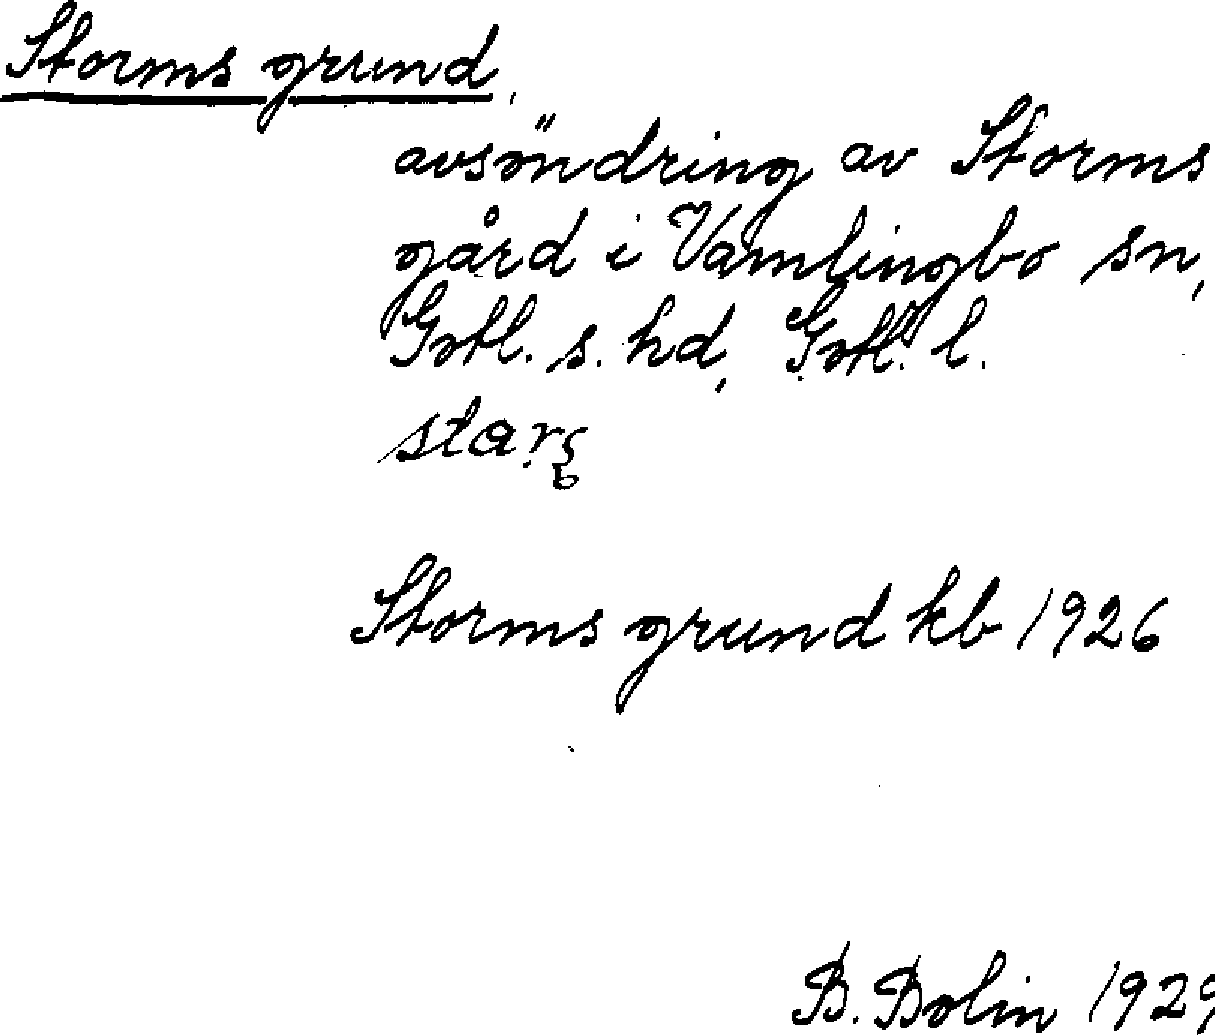 Storms grund,
avsöndring av Storms
gård i Vamlingbo sn,
Gotl. s. hd, Gotl. l.
Storms grund kb 1926
B. Bolin 1929